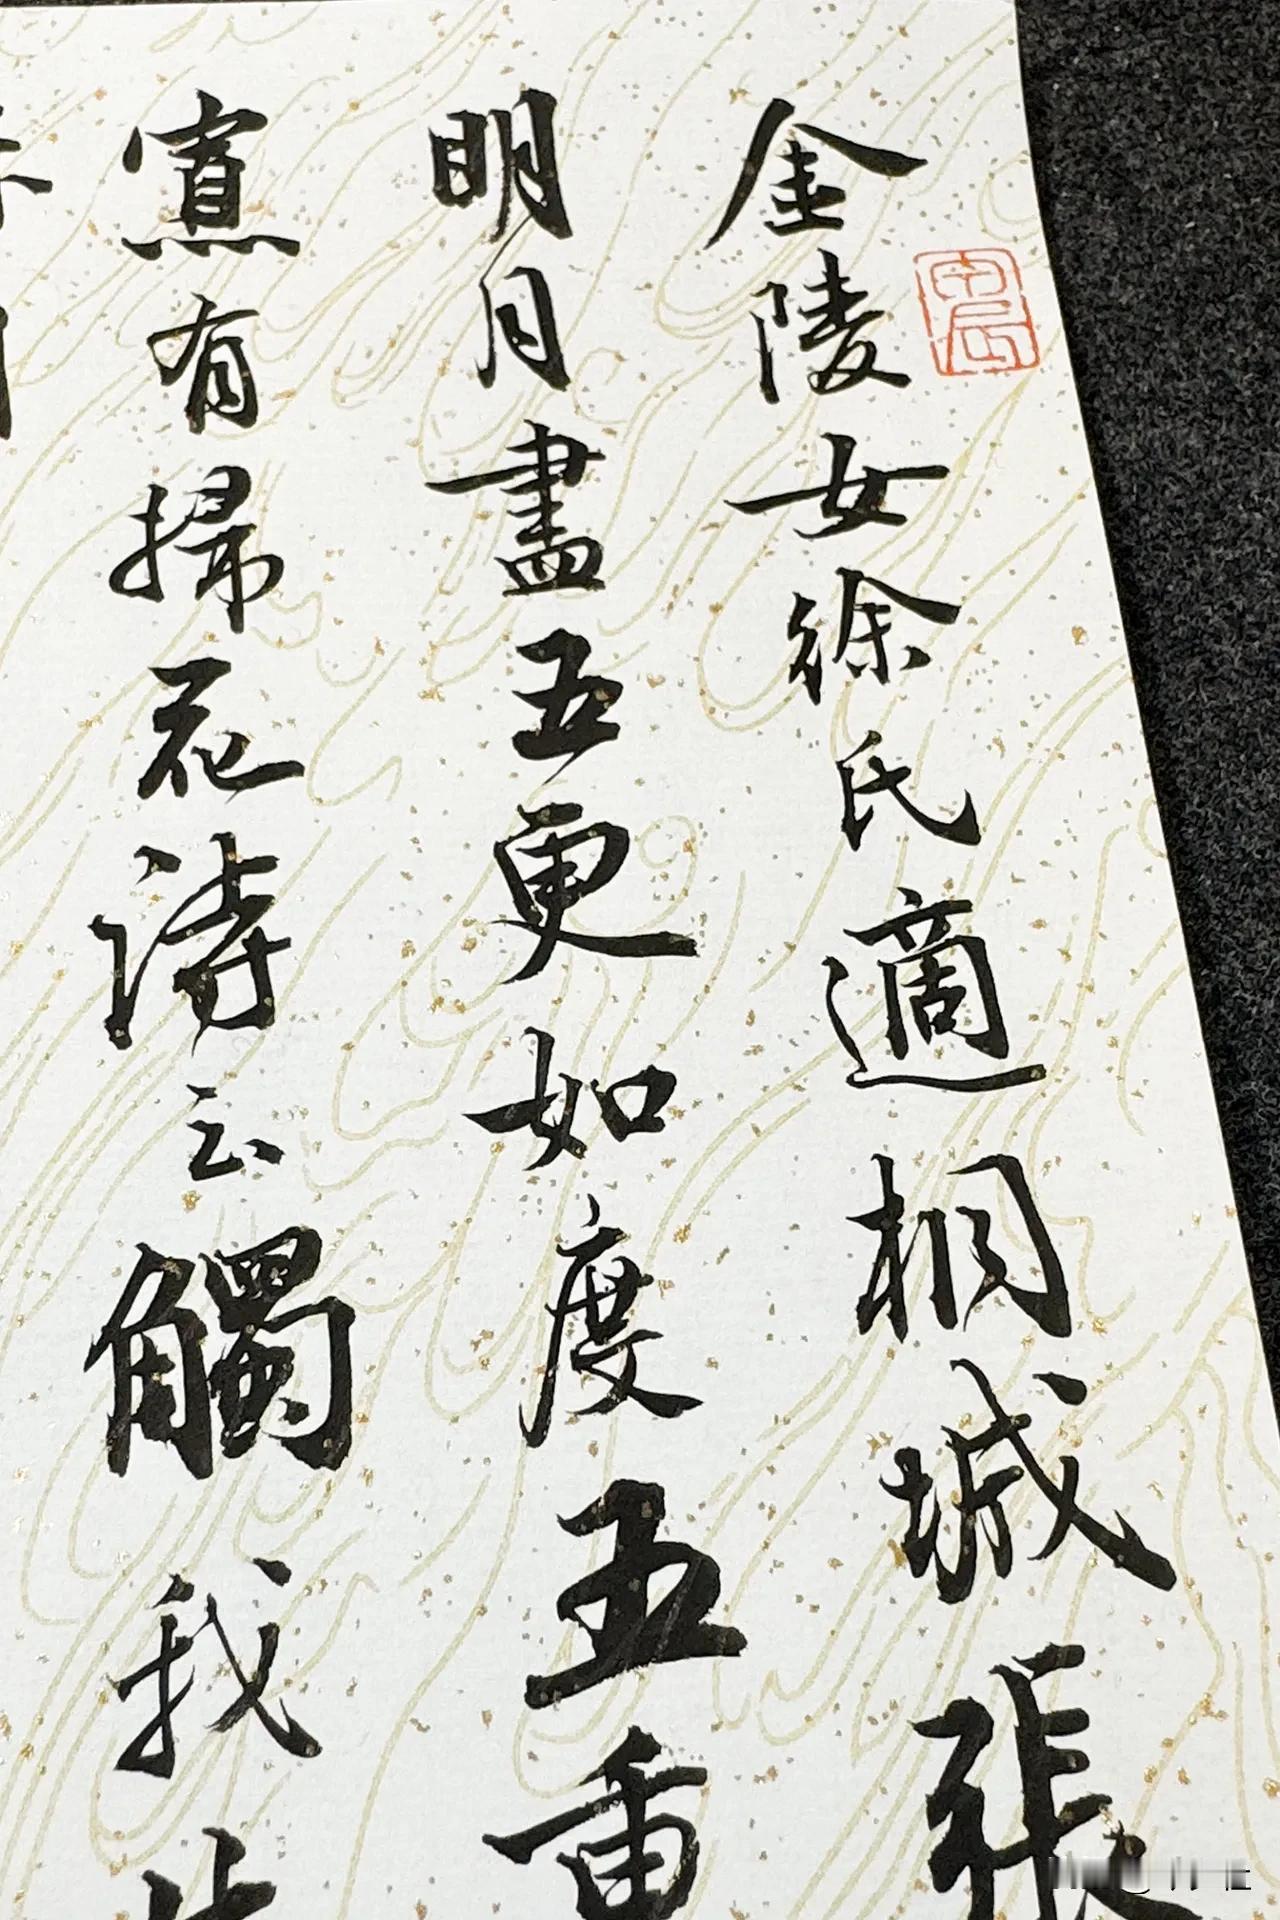 金陵女徐氏適桐城張
明月盡五更如度五重
寡有掃花詩云觸我